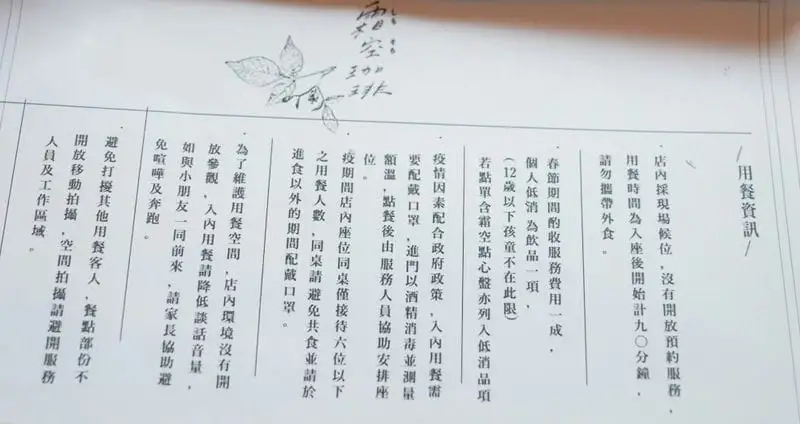 霜空珈琲
/用餐資訊/
・店內採現場候位，沒有開放預約服務，
用餐時間為入座後開始計九〇分鐘，
請勿攜帶外食。
・春節期間酌收服務費用一成，
個人低消為飲品一項，
(12歲以下孩童不在此限)
若點單含霜空點心盤亦列入低消品項
・疫情因素配合政府政策，入內用餐需
要配戴口罩，進門以酒精消毒並測量
額溫，點餐後由服務人員協助安排座
位。
・疫期間店內座位同桌僅接待六位以下
之用餐人數，同桌請避免共食並請於
進食以外的期間配戴口罩。
・為了維護用餐空間，店內環境沒有開
放參觀，入內用餐請降低談話音量，
如與小朋友一同前來，請家長協助避
免喧嘩及奔跑。
・避免打擾其他用餐客人，餐點部份不
開放移動拍攝，空間拍攝請避開服務
人員及工作區域。